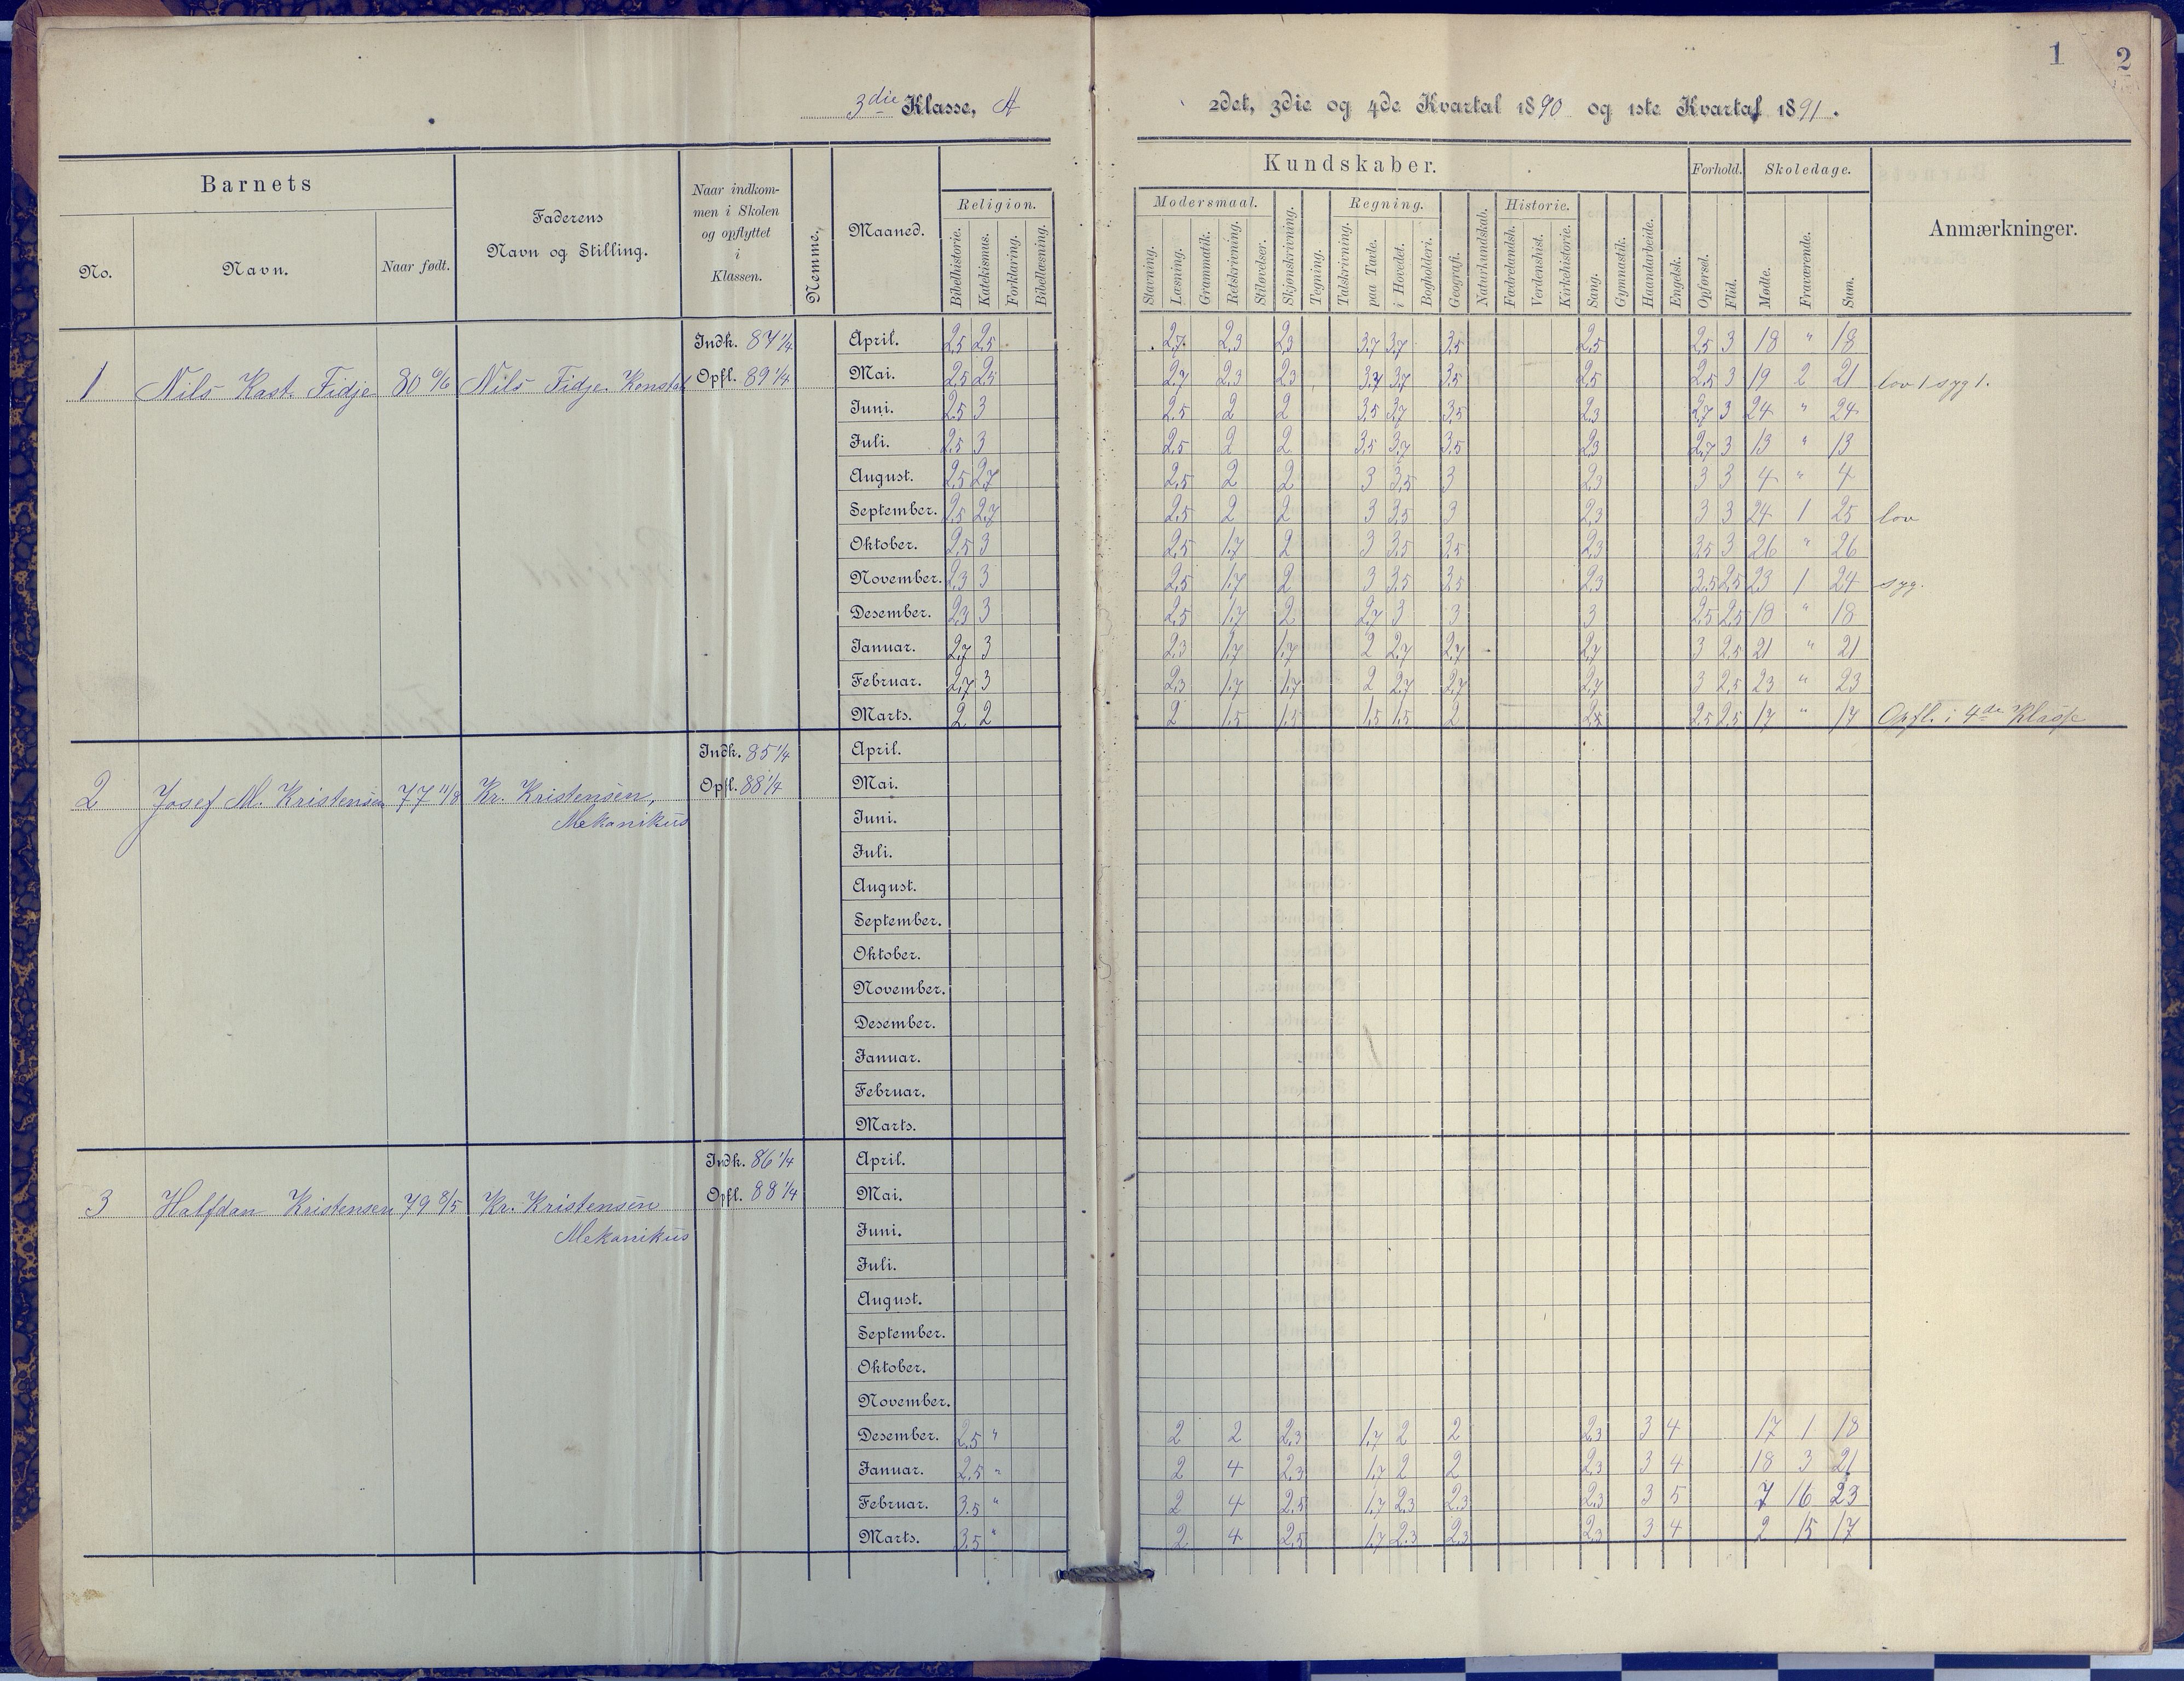 1 2
3die Klasse, A 2det, 3die og 4de Kvartal 1890 og 1ste Kvartal 1891.
Barnets
No.
Navn.
Naar født.
Faderens
Navn og Stilling.
Naar indkom-
men i Skolen
og opflyttet
i
Klassen.
Nemme.
Maaned.
Religion.
Bibelhistorie.
Katekismus.
Forklaring.
Bibellæsning.
Kundskaber.
Modersmaal.
Stavning.
Læsning.
Grammatik.
Retskrivning.
Stiløvelser.
Skjønskrivning.
Tegning.
Regning.
Talskrivning.
paa Tavle.
i Hovedet.
Bogholderi.
Geografi.
Naturkundskab.
Historie.
Fædrelandsh.
Verdenshist.
Kirkehistorie.
Sang.
Gymnastik.
Haandarbeide.
Engelsk.
Forhold.
Opførsel.
Flid.
Skoledage.
Mødte.
Fraværende.
Sum.
Anmærkninger.
1 Nils Kast. Fidje 80 6/6 Nils Fidje Konstab Indk. 87 1/4 Opfl. 89 1/4
April. 2,5 2,5 2,7 2,3 2,3 3,7 3,7 3,5 2,5 2,5 3 18 " 18
Mai. 2,5 2,5 2,7 2,3 2,3 3,7 3,7 3,5 2,5 2,5 3 19 2 21 lov 1 syg 1.
Juni. 2,5 3 2,5 2 2 3,5 3,7 3,5 2,3 2,7 3 24 " 24
Juli. 2,5 3 2,5 2 2 3,5 3,7 3,5 2,3 2,7 3 13 " 13
August. 2,5 2,7 2,5 2 2 3 3,5 3 2,3 3 3 4 " 4
September. 2,5 2,7 2,5 2 2 3 3,5 3 2,3 3 3 24 1 25 lov
Oktober. 2,5 3 2,5 1,7 2 3 3,5 3,5 2,3 3,5 3 26 " 26
November. 2,3 3 2,5 1,7 2 3 3,5 3,5 2,3 3,5 2,5 23 1 24 syg.
Desember. 2,3 3 2,5 1,7 2 2,7 3 3 3 2,5 2,5 18 " 18
Januar. 2,7 3 2,3 1,7 1,7 2 2,7 2,7 2,7 3 2,5 21 " 21
Februar. 2,7 3 2,3 1,7 1,7 2 2,7 2,7 2,7 3 2,5 23 " 23
Marts. 2 2 2 1,5 1,5 1,5 1,5 2 2,5 2,5 17 " 17 Opfl. i 4de Klasse
2 Josef M. Kristensen 77 11/8 Kr. Kristensen,
Mekanikus
Indk. 85 1/4
Opfl. 88 1/4
April.
Mai.
Juni.
Juli.
August.
September.
Oktober.
November.
Desember.
Januar.
Februar.
Marts.
3 Halfdan Kristensen 79 8/5 Kr. Kristensen
Mekanikus
Indk. 86 1/4
Opfl. 88 1/4
April.
Mai.
Juni.
Juli.
August.
September.
Oktober.
November.
Desember. 2,5 " 2 2 2,3 1,7 2 2 2,3 3 4 17 1 18
Januar. 2,5 " 2 4 2,3 1,7 2 2 2,3 3 4 18 3 21
Februar. 3,5 " 2 4 2,5 1,7 2,3 2,3 2,3 3 5 7 16 23
Marts. 3,5 " 2 4 2,5 1,7 2,3 2,3 2,3 3 4 2 15 17